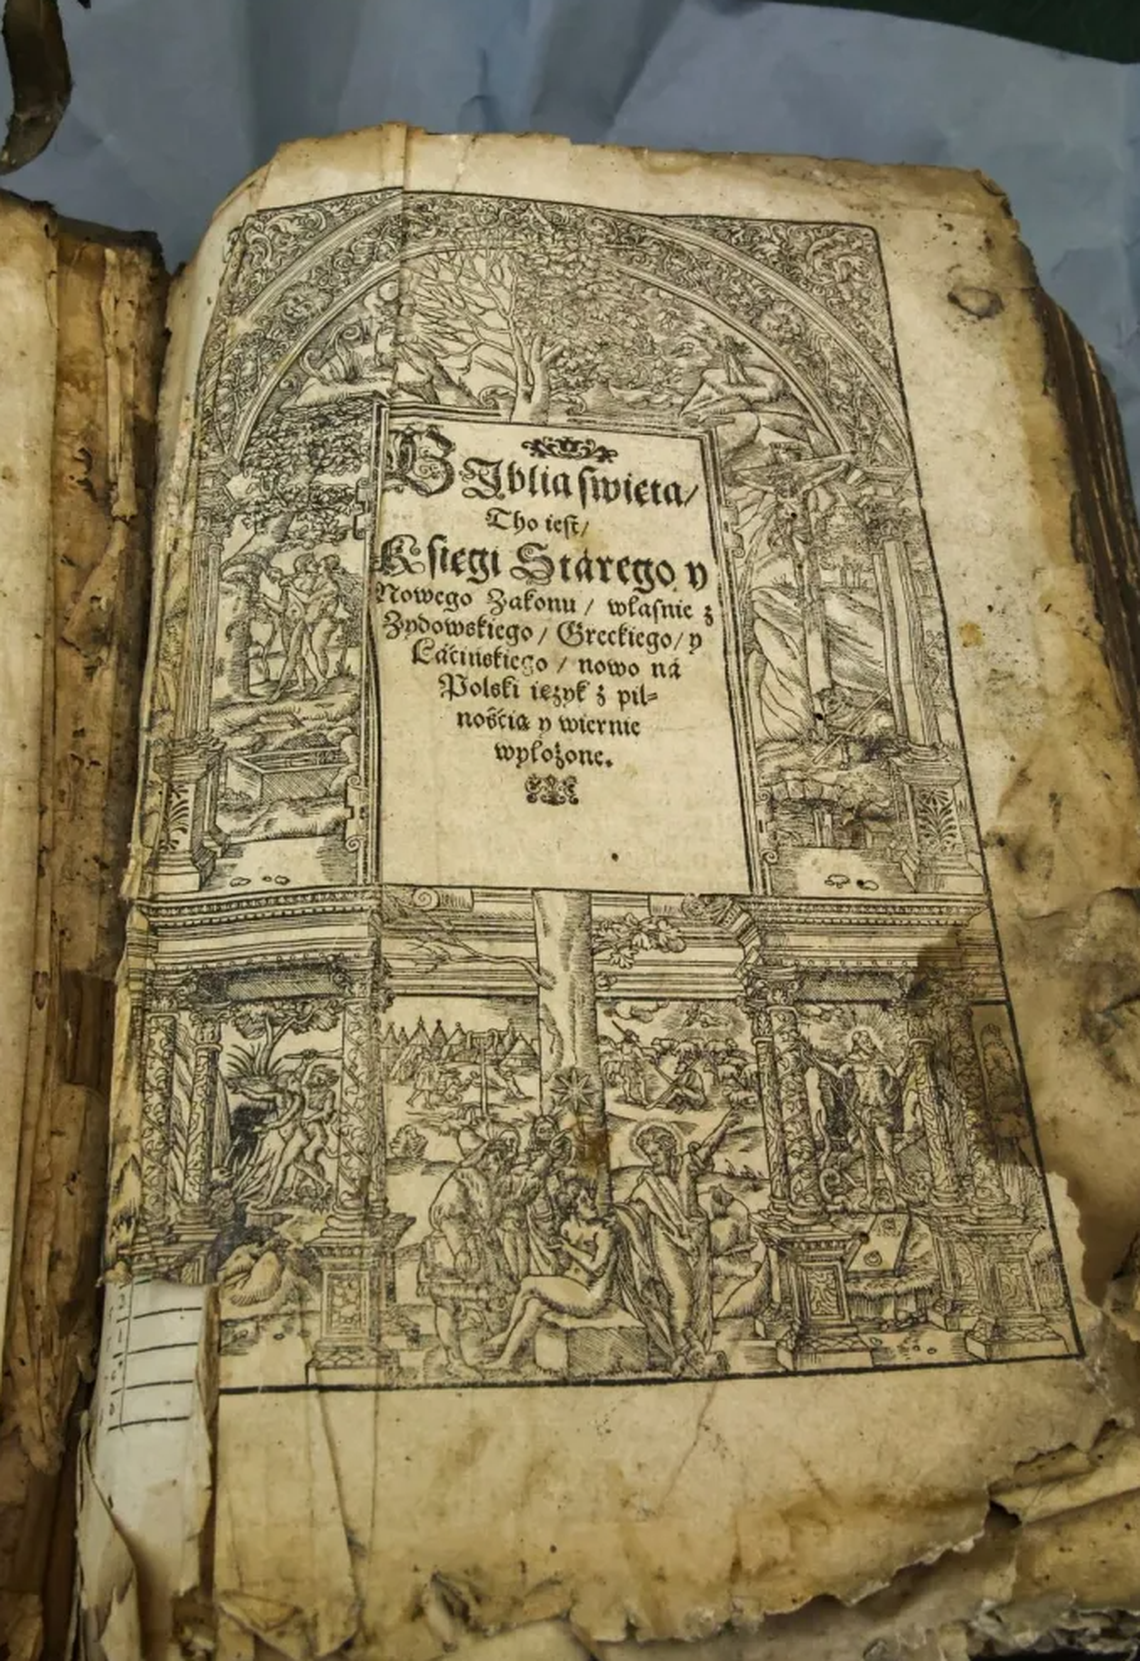 Biblia święta/
Tho iest/
Kſięgi Stárego y
Nowego Zakonu / własnie z
Zydowskiego / Greckiego/ y
Łácińskiego / nowo ná
Polski ięzyk z pil⸗
nością y wiernie
wyłożone.